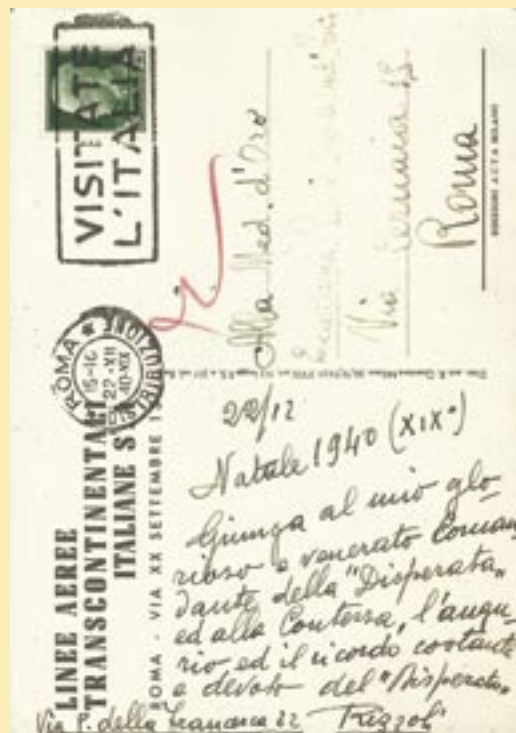 VISITATE
L'ITALIA
ROMA
15-16
22·XII
40·XIX
DISTRIBUZIONE
LINEE AEREE
TRANSCONTINENTALI
ITALIANE S
ROMA - VIA XX SETTEMBRE
Alla Med. d'Oro
Via
Roma
EDIZIONI A.C.T.A. MILANO
22/12
Natale 1940 (XIX°)
Giunga al mio glo-
rioso e venerato Coman
dante della "Disperata"
ed alla Contessa, l'augu-
rio ed il ricordo costante
e devoto del "Disperato"
Rizzoli
Via P. della Francesca 22